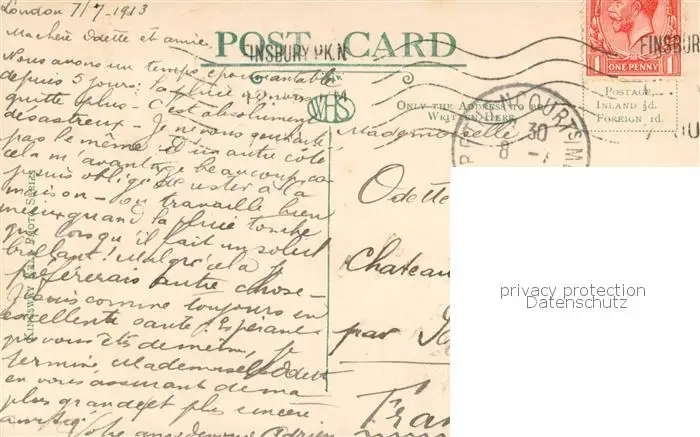 London 7/7/1913
Ma chère Odette et amie,
Nous avons un temps épouvantable
depuis 5 jours; la pluie ne nous
quitte plus – C'est absolument
désastreux – Je ne vous
pas le même d'un autre côté
cela m'avantage beaucoup, ca
je suis obligé de rester à la
maison – on travaille bien
mieux quand la pluie tombe
que lorsqu'il fait un soleil
brillant! Malgré cela je
préférerais autre chose –
Je suis comme toujours en
excellente santé; Espérant
que vous êtes de même, je
termine, Mademoiselle Odette
en vous assurant de ma
plus grande et plus sincère
amitié
Votre Adrien
POST CARD
FINSBURY PK.N
WHS
ONLY THE ADDRESS TO BE
WRITTEN HERE
KINGSWAY REAL PHOTO SERIES
ONE PENNY
1 1
FINSBUR
POSTAGE,
INLAND ½d.
FOREIGN 1d.
30
8
Mademoiselle
Odette
Chateau
par
Fran
privacy protection
Datenschutz